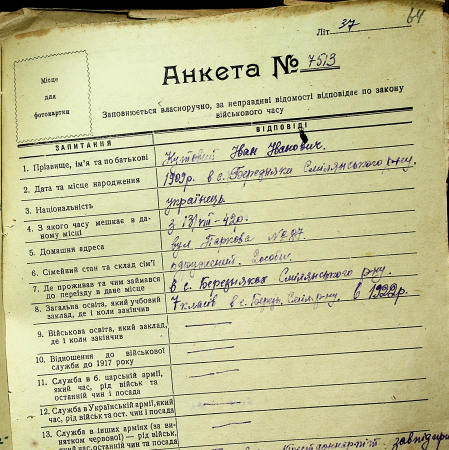 Літ. 37
64
Місце
для
фотокартки
Анкета № 7513
Заповнюється власноручно, за неправдиві відомості відповідає по закону
військового часу
ЗАПИТАННЯ
ВІДПОВІДІ
1. Прізвище, ім'я та по батькові
Кутовий Іван Іванович.
2. Дата та місце народження
1909 р. в с. Березняки Смілянського р-ну.
3. Національність
українець
4. З якого часу мешкає в даному місці
з 13/VIII-42р.
5. Домашня адреса
вул. Паркова № 87.
6. Сімейний стан та склад сім'ї
одружений.
7. Де проживав та чим займався
до переїзду в дане місце
в с. Березняках Смілянського р-ну.
8. Загальна освіта, який учбовий
заклад, де і коли закінчив
7 класів в с. Берез. Сміл. р-ну. в 1922 р.
9. Військова освіта, який заклад,
де і коли закінчив
10. Відношення до військової
служби до 1917 року
11. Служба в б. царській армії,
який час, рід військ та
останній чин і посада
12. Служба в Українській армії, який
час, рід військ та ост. чин і посада
13. Служба в інших арміях (за ви-
нятком червоної) — рід військ,
який час, останній чин та посада